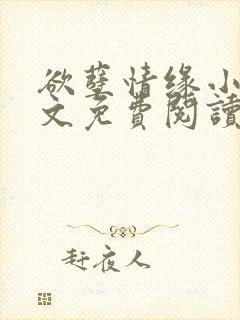 欲孽情缘小
文免費閱讀
赶夜人